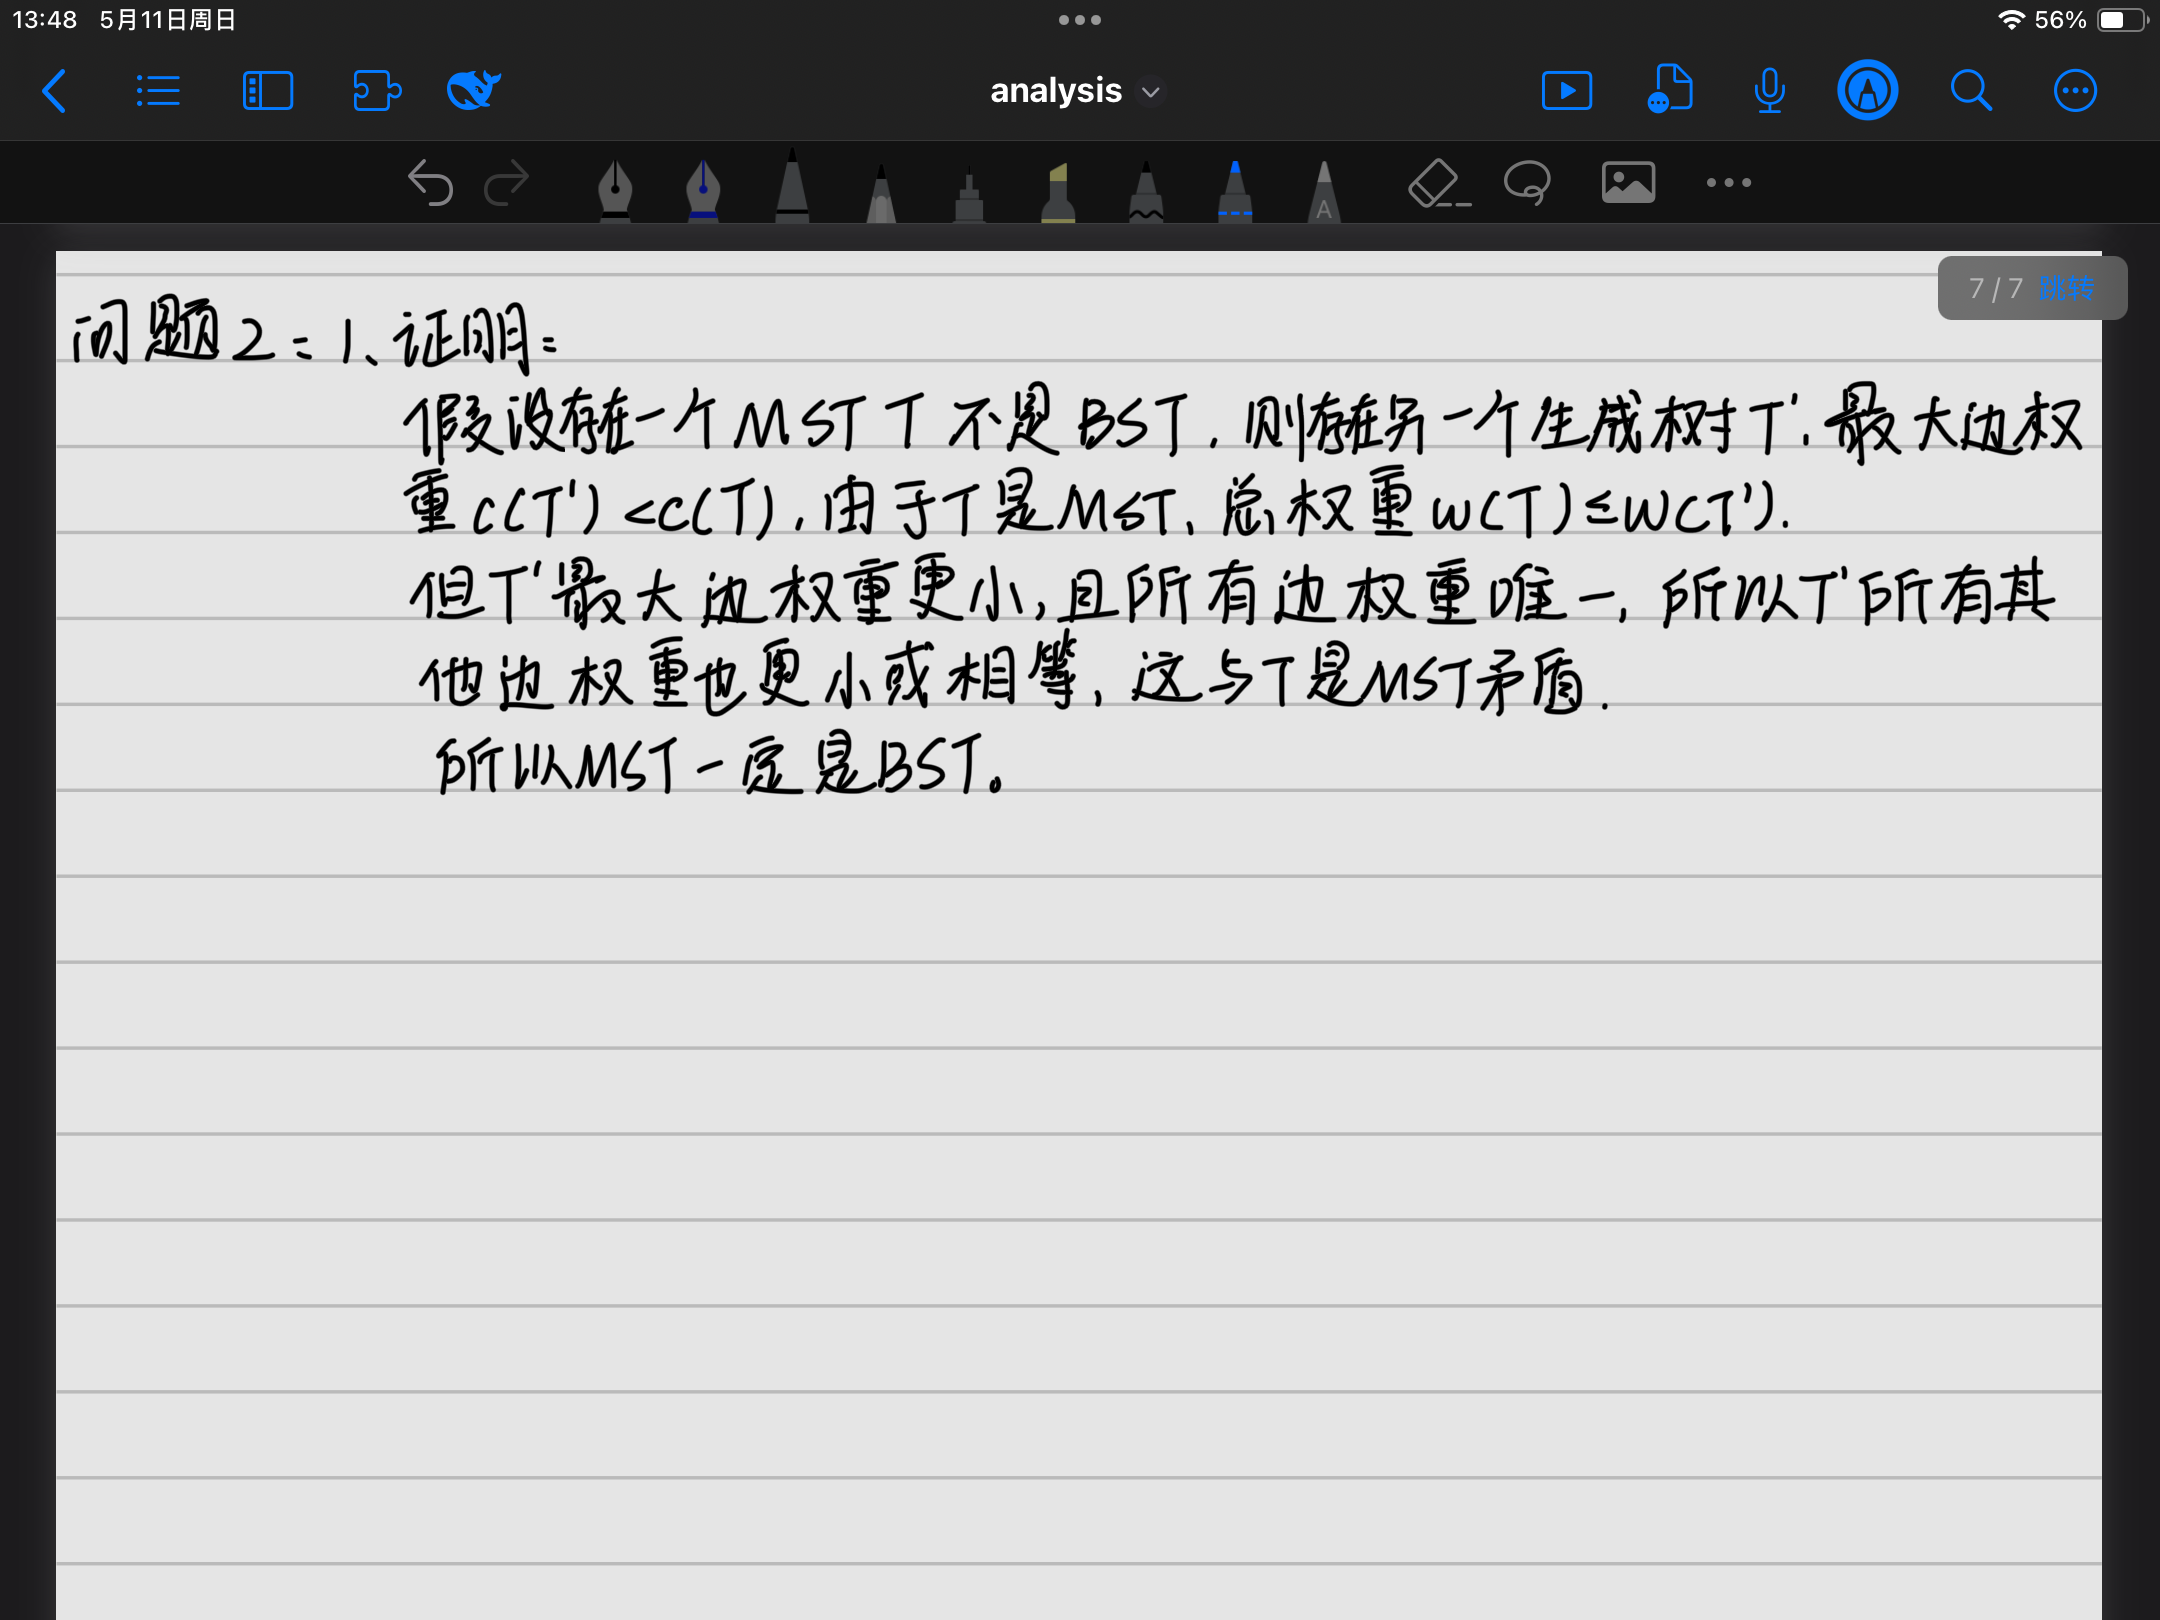 13:48 5月11日周日
56%
analysis
A
7 / 7 跳转
问题2:1、证明:
假设存在一个MST T不是BST,则存在另一个生成树T',最大边权
重c(T')<c(T),由于T是MST、总权重w(T)≤w(T').
但T'最大边权重更小,且所有边权重唯一,所以T'所有其
他边权重也更小或相等,这与T是MST矛盾.
所以MST一定是BST。